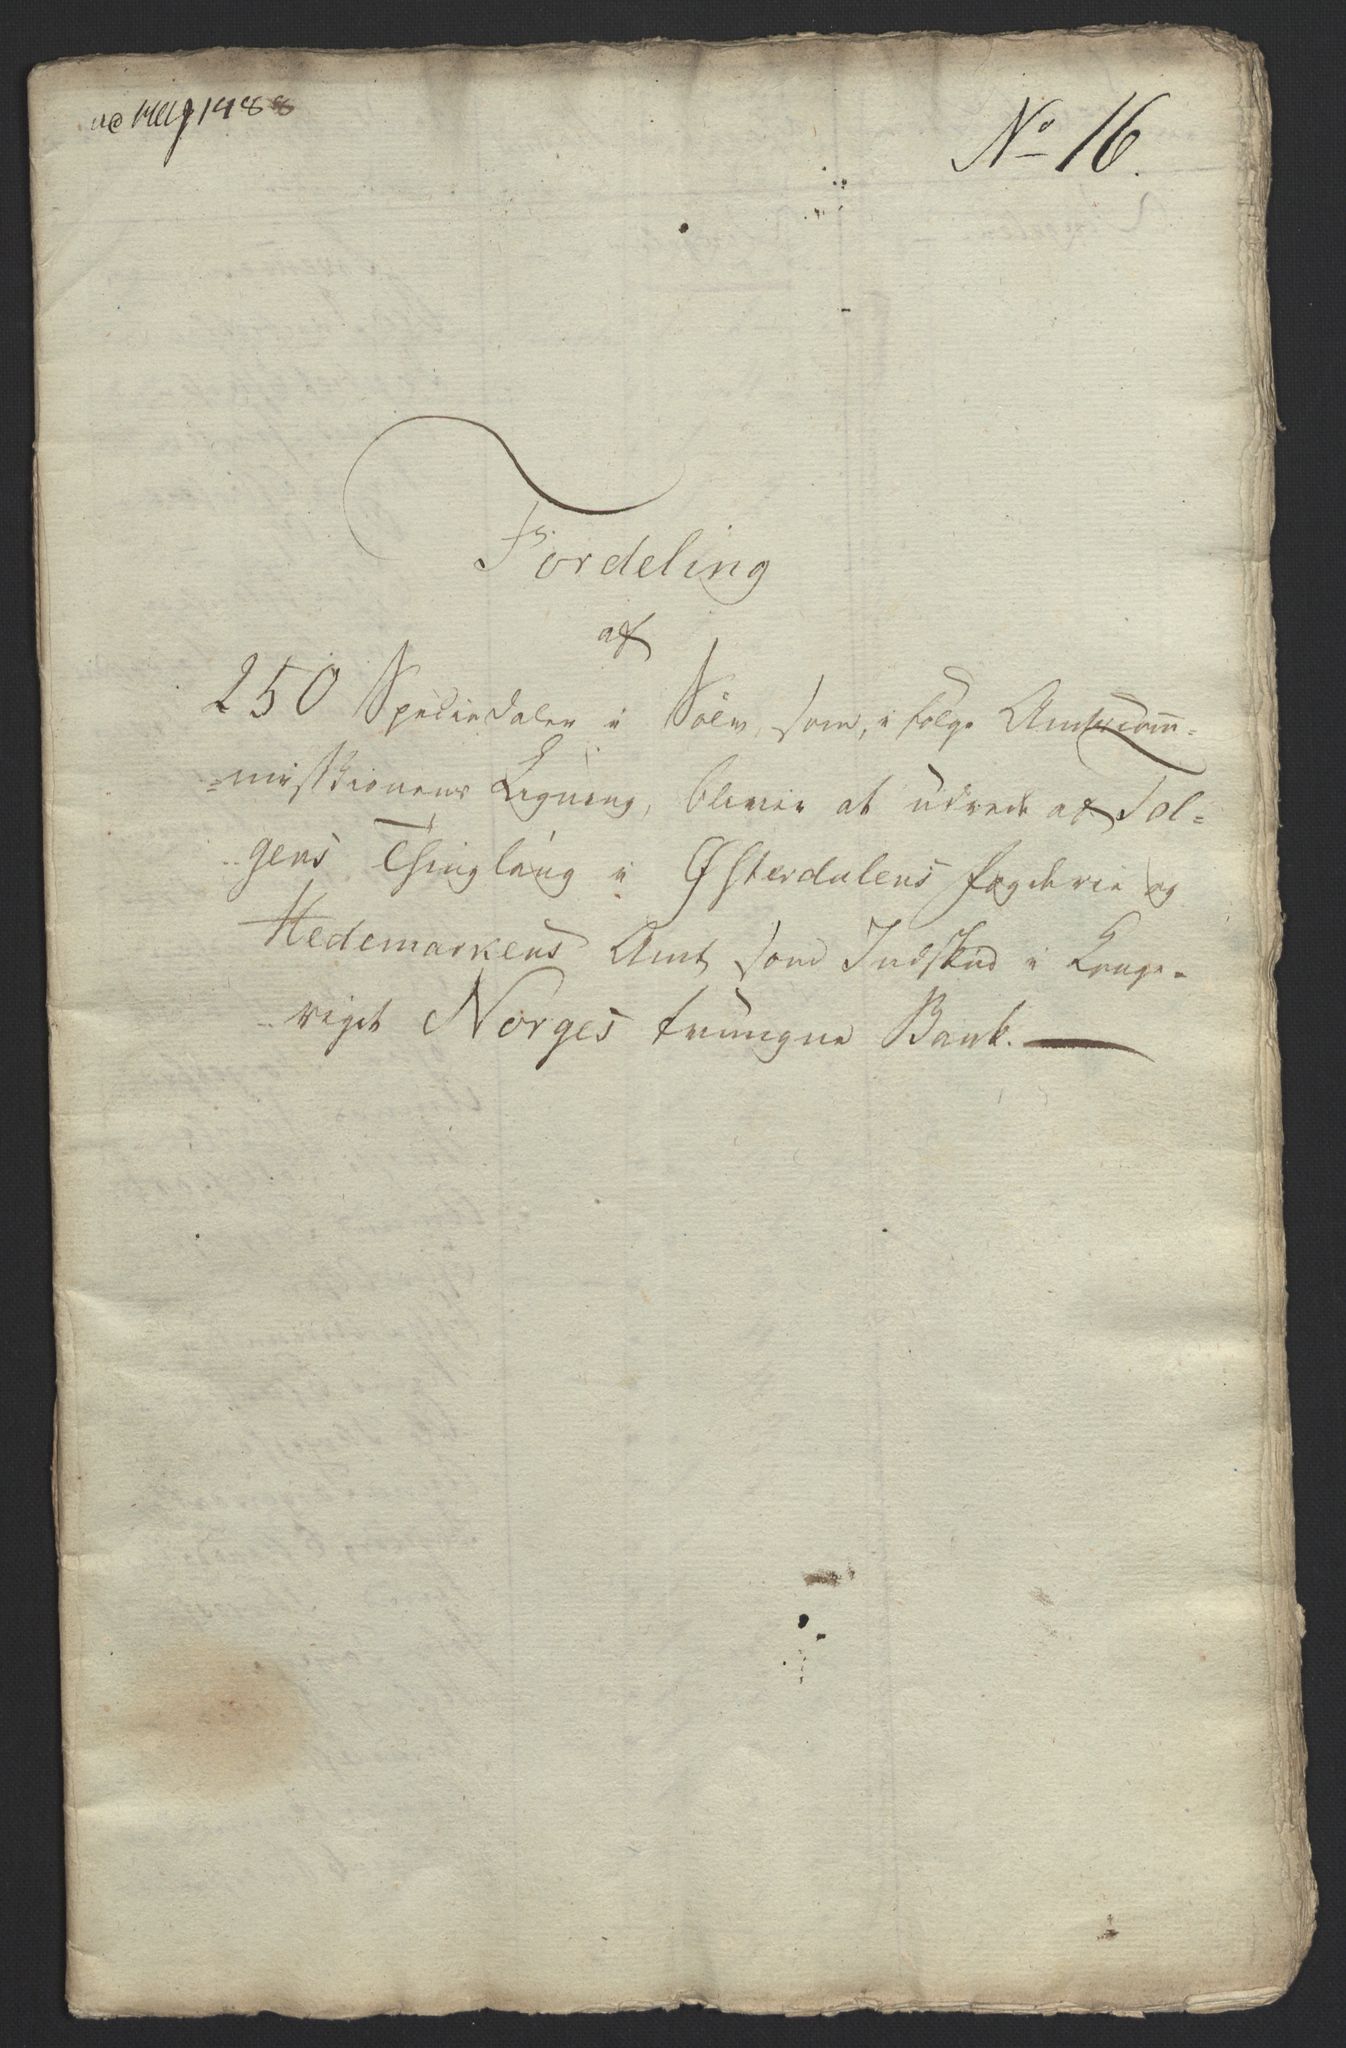 No 16.
Fordeling
af
250 Speciedaler i Sølv, som, i følge Amtscom¯=
=misskionens Ligning, bliver at udrede af Tol=
gens Thinglaug i Østerdalens fogderie og
Hedemarkens Amt som Indskud i Konge=
riget Norges tvungne Bank.